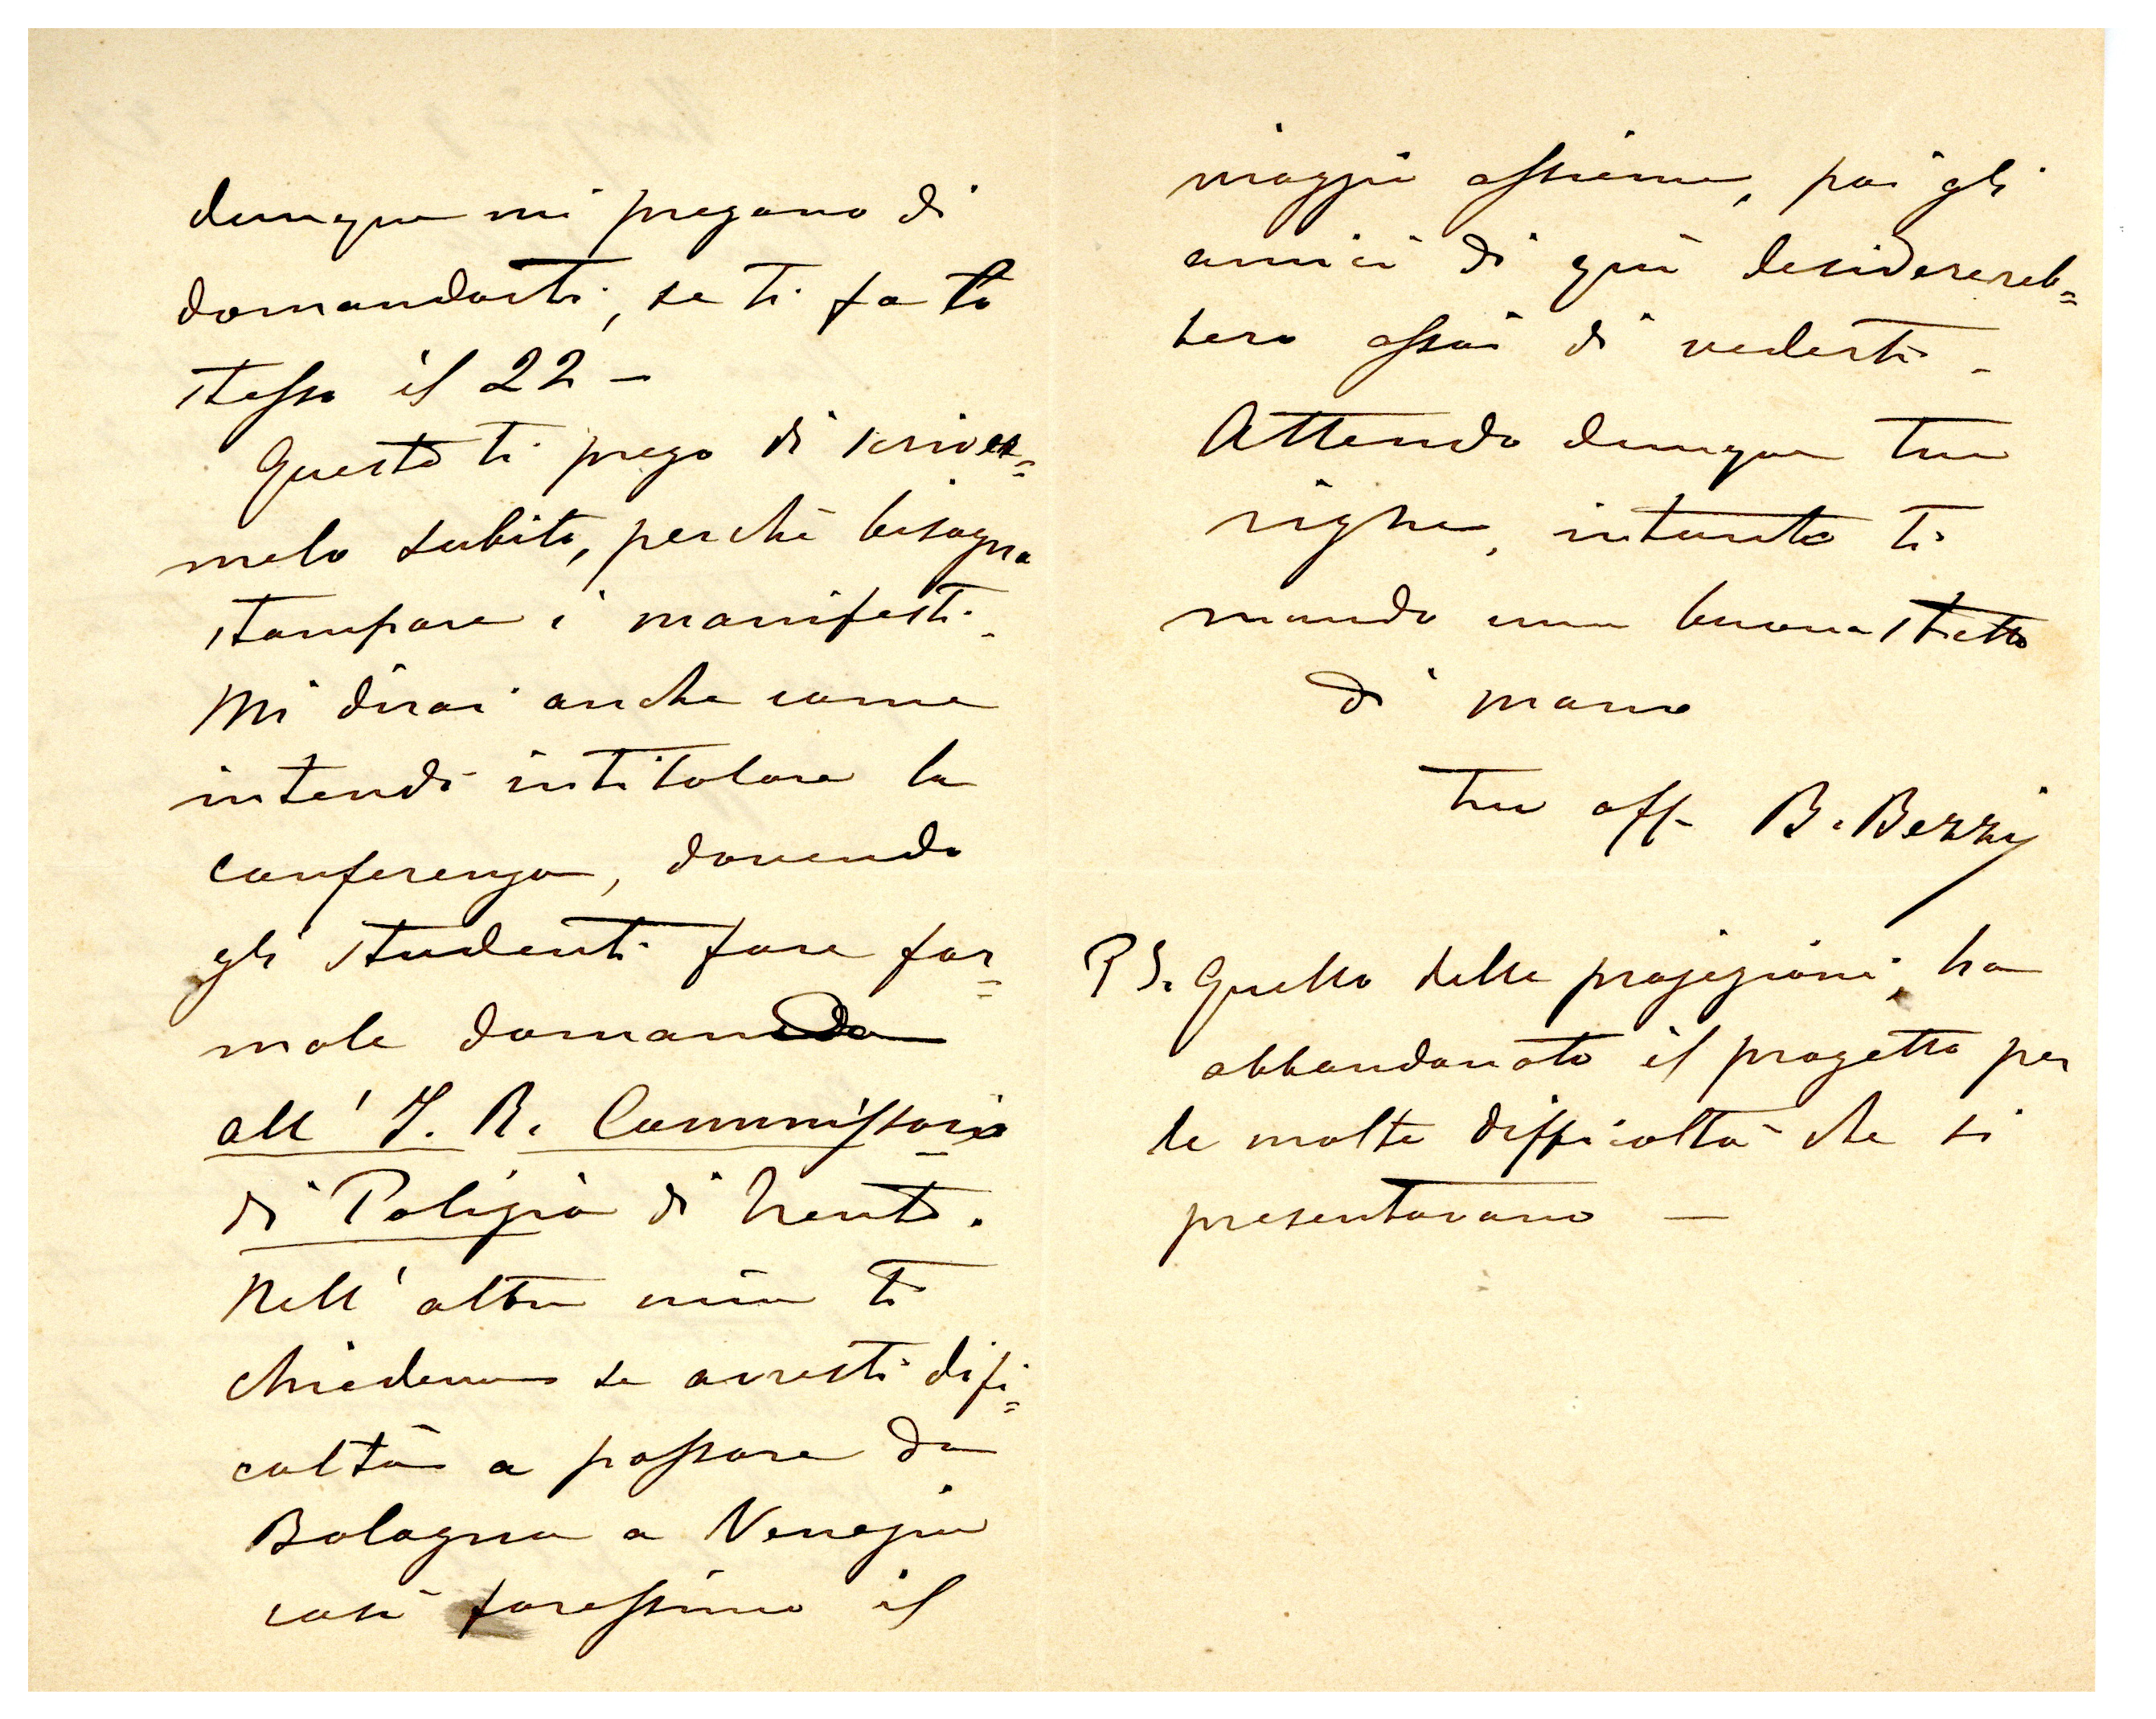 dunque mi pregano di
domandarti, se ti fa lo
stesso il 22 –
Questo ti prego di scriver=
melo subito, perchè bisogna
stampare i manifesti.
Mi dirai anche come
intendi intitolare la
conferenza, dovendo
gli studenti fare for=
male domanda
all' I. R. Commissario
di Polizia di Trento.
Nell' altra mia ti
chiedevo se avresti difi=
coltà a passare da
Bologna a Venezia
così faressimo il
viaggio assieme, poi gli
amici di quì desiderereb=
bero assai di vederti –
Attendo dunque tue
righe, intanto ti
mando una buona stretta
di mano
tuo aff. B. Bezzi
PS. Quello delle projezioni, ha
abbandonato il progetto per
le molte difficoltà che si
presentavano —